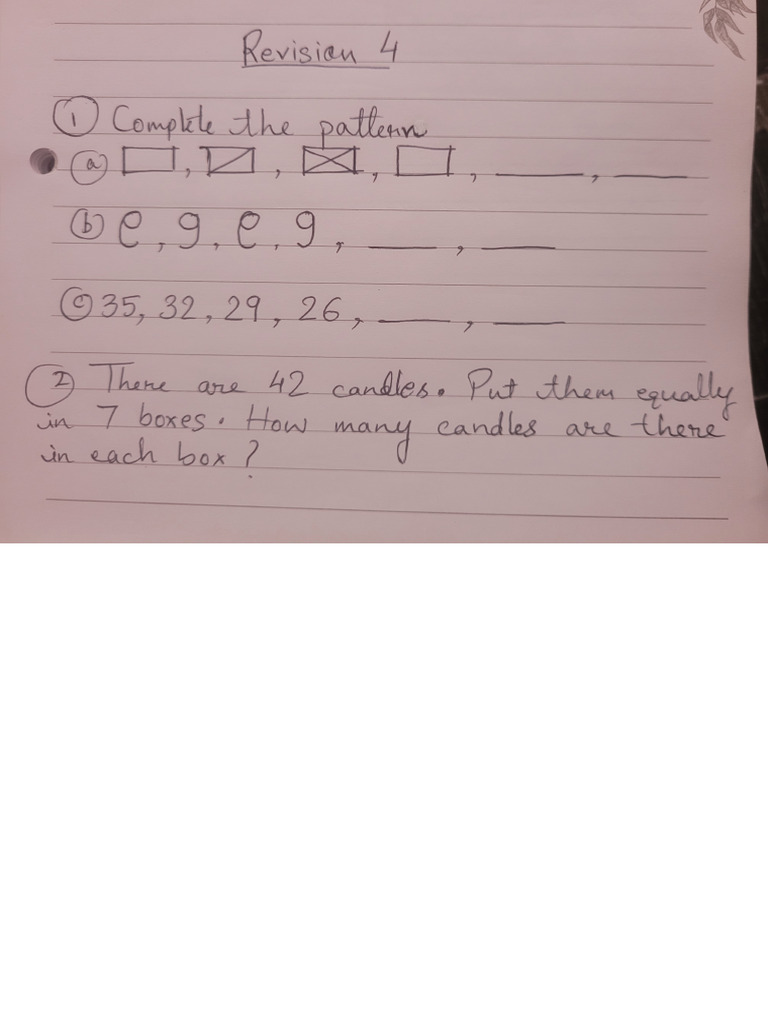 Revision 4
① Complete the pattern
ⓐ ▭, ⧄, ⊠, ▭, ____, ____
ⓑ e, g, e, g, ____, ____
ⓒ 35, 32, 29, 26, ____, ____
② There are 42 candles. Put them equally
in 7 boxes. How many candles are there
in each box?